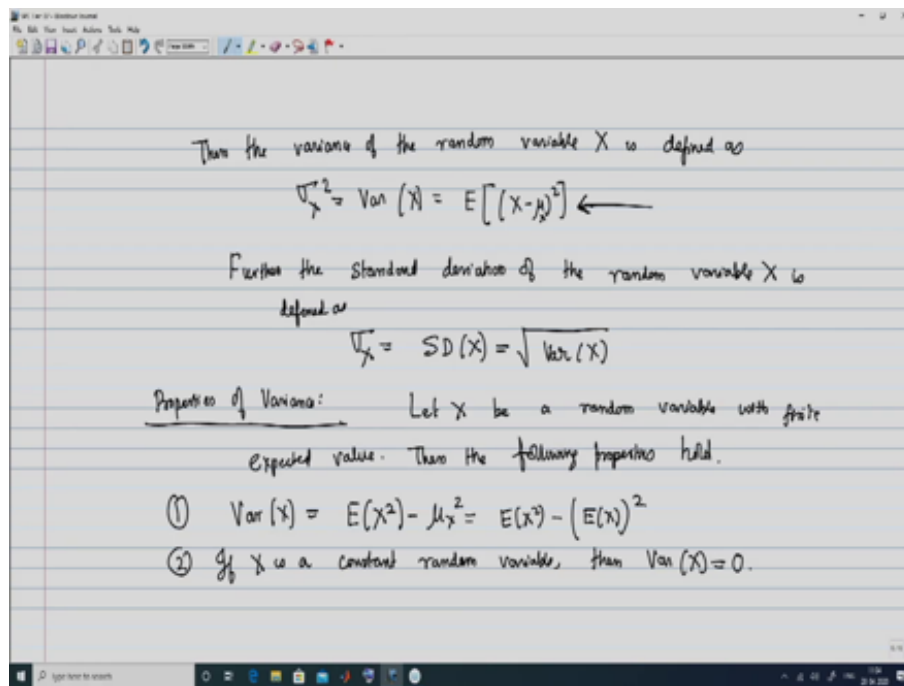 File Edit View Insert Actions Tools Help
Then the variance of the random variable X is defined as
σ_X² = Var (X) = E[(X-μ_X)²] ←
Further the standard deviation of the random variable X is
defined as
σ_X = SD(X) = √Var(X)
Properties of Variance: Let X be a random variable with finite
expected value. Then the following properties hold.
① Var(X) = E(X²) - μ_X² = E(X²) - (E(X))²
② If X is a constant random variable, then Var(X) = 0.
Type here to search